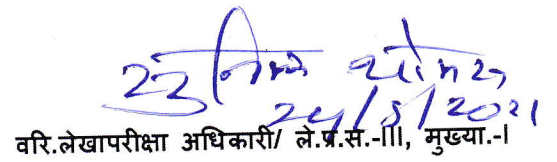 24/5/2021
वरि.लेखापरीक्षा अधिकारी/ ले.प्र.स.-III, मुख्या.-I